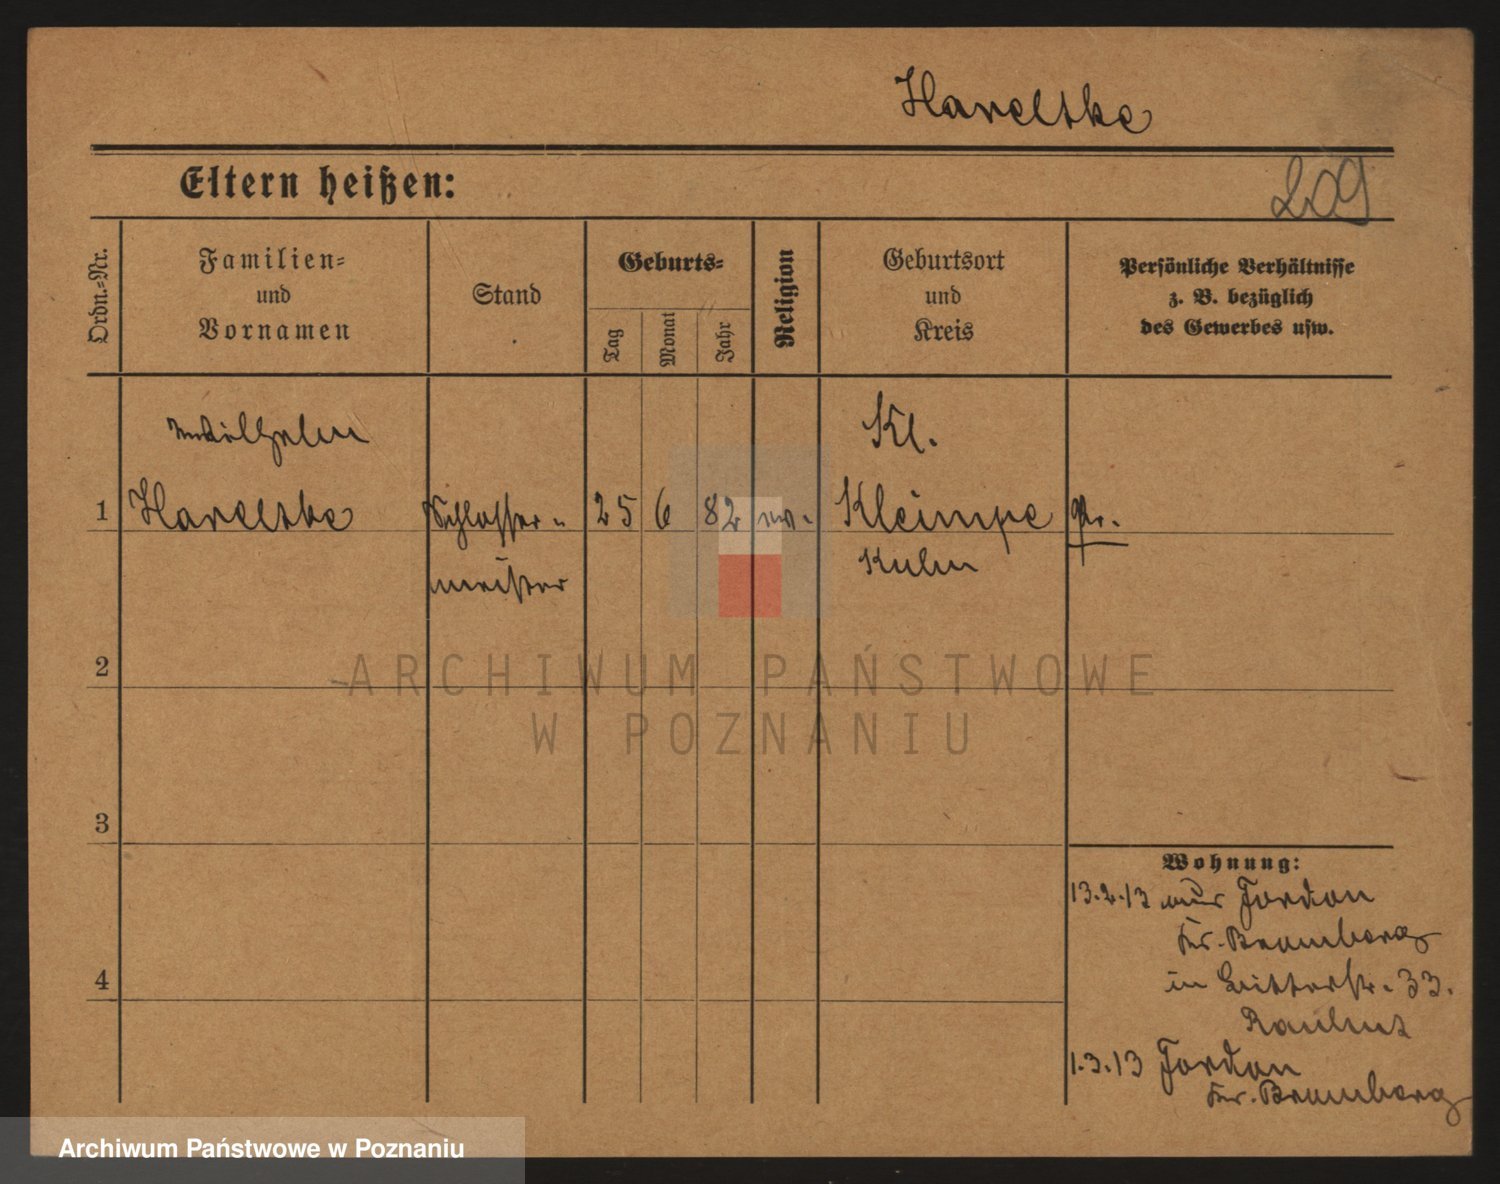 Haveltke
Eltern heißen:
209
Ordn.-Nr.
Familien-
und
Vornamen
Stand
Geburts-
Tag
Monat
Jahr
Religion
Geburtsort
und
Kreis
Persönliche Verhältnisse
z. B. bezüglich
des Gewerbes usw.
Wilhelm
Kl.
1
Haveltke
Schlosser-
25
6
82
ev.
Kleimpe
Pr.
meister
Kulm
2
3
4
Wohnung:
13.2.13 aus Fordon
Kr. Bromberg
in Ritterstr. 33.
1.3.13 Fordon
Kr. Bromberg
ARCHIWUM PAŃSTWOWE
W POZNANIU
Archiwum Państwowe w Poznaniu